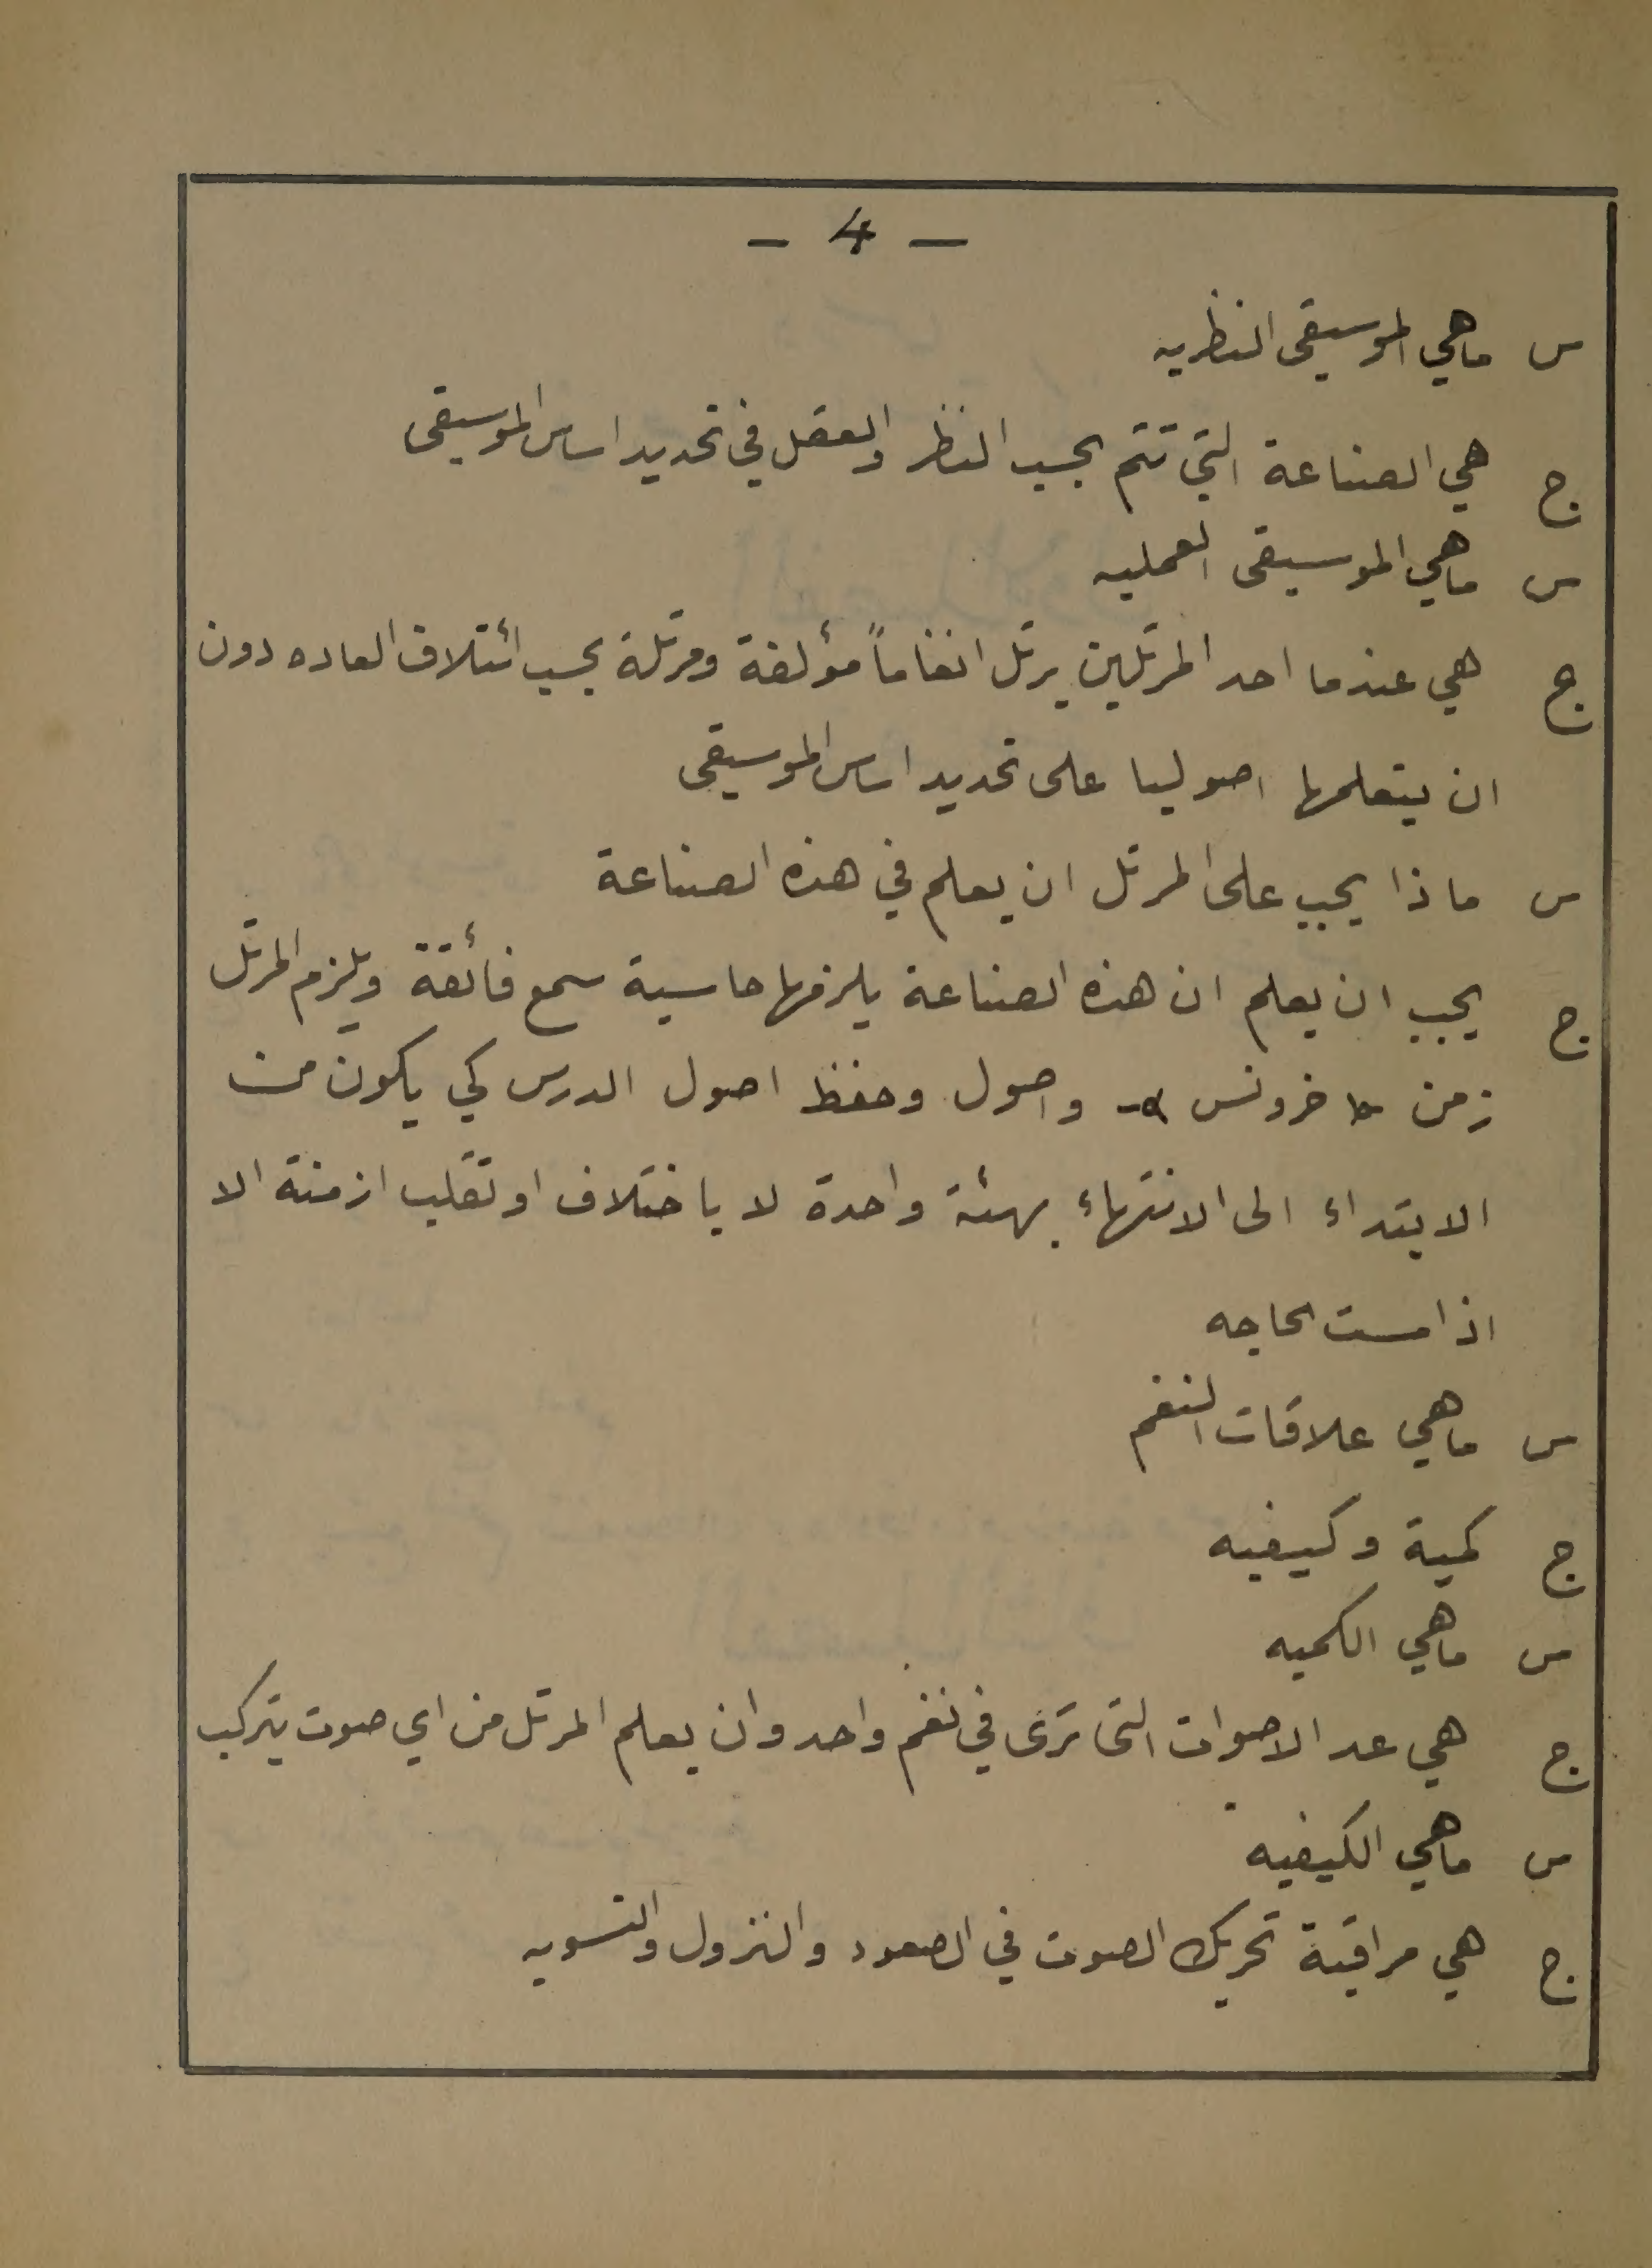 - 4 -
س ماهي الموسيقى النظريه
ج هي الصناعة التي تتم بحسب النظر والعقل في تحديد اساس الموسيقى
س ماهي الموسيقى العمليه
ج هي عندما احد المرتلين يرتل انغاماً مؤلفة ومرتلة بحسب ائتلاف العاده دون
ان يتعلمها اصوليا على تحديد اساس الموسيقى
س ماذا يجب على المرتل ان يعلم في هذه الصناعة
ج يجب ان يعلم ان هذه الصناعة يلزمها حاسية سمع فائقة ويلزم المرتل
زمن خرونس واصول وحفظ اصول الدرس كي يكون من
الابتداء الى الانتهاء بهئة واحدة لا باختلاف او تقليب ازمنة الا
اذا مست الحاجه
س ماهي علاقات النغم
ج كمية وكيفيه
س ماهي الكميه
ج هي عد الاصوات التى ترى في نغم واحد وان يعلم المرتل من اي صوت يتركب
س ماهي الكيفيه
ج هي مراقبة تحريك الصوت في الصعود والنزول والتسويه